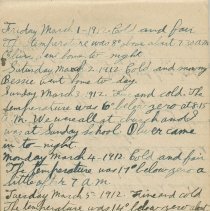 Friday March 1-1912. Cold and fair
The temperature was 8° at 7.30 a.m.
home to night
Saturday March 2, 1912. Cold and snowy
Bessie went home to day
Sunday March 3, 1912. Fine and cold. The
temperature was 6° below zero at 8.15
a.m. We were all at church and
was at Sunday school. Oliver came
in to night.
Monday March 4, 1912. Cold and fair
The temperature was 14° below zero a
little after 7 A.M.
Tuesday March 5, 1912. Fine and cold
The temperature was 14° below zero about